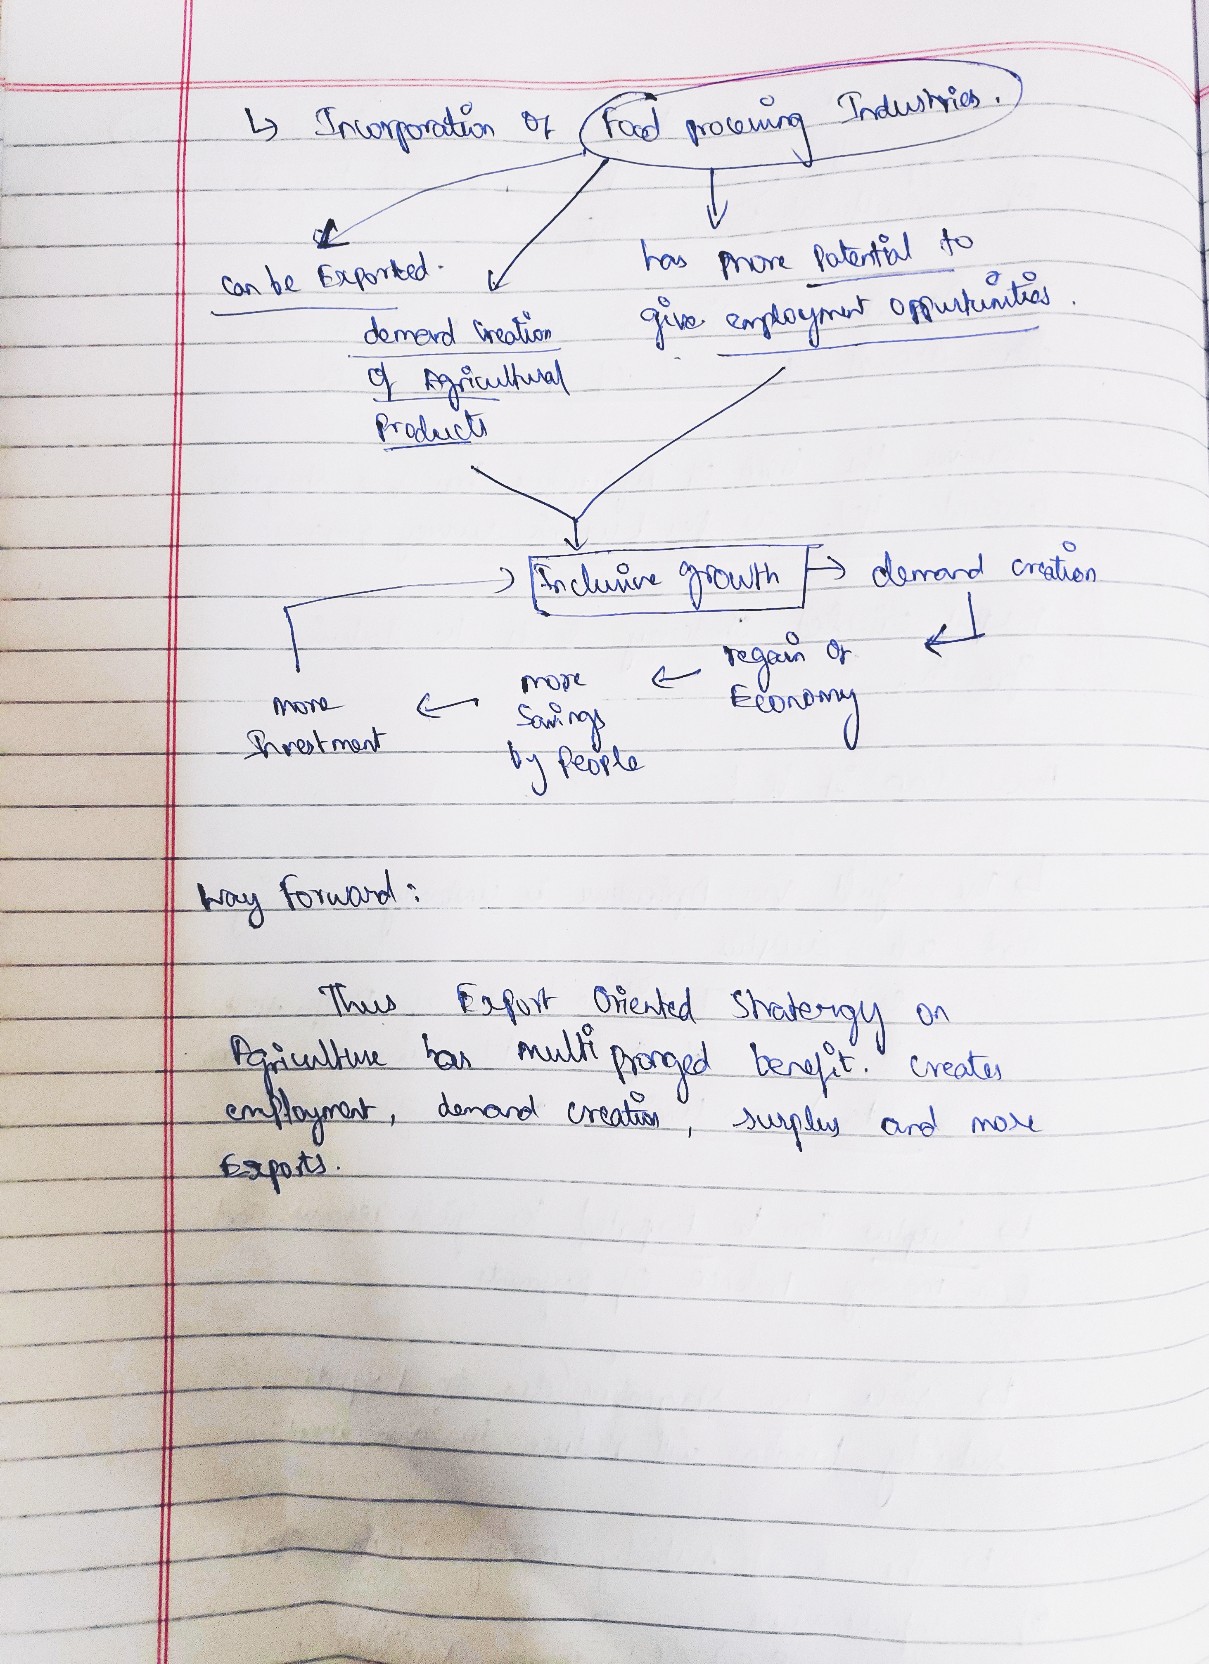 ↳ Incorporation of Food processing Industries.
can be Exported.
demand creation
of Agricultural
Products
has more Potential to
give employment oppurtunities.
Inclusive growth → demand creation
regain of
Economy
more
Savings
by People
more
Investment
Way forward:
Thus Export Oriented Stratergy on
Agriculture has multi pronged benefit. Creates
employment, demand creation, surplus and more
Exports.